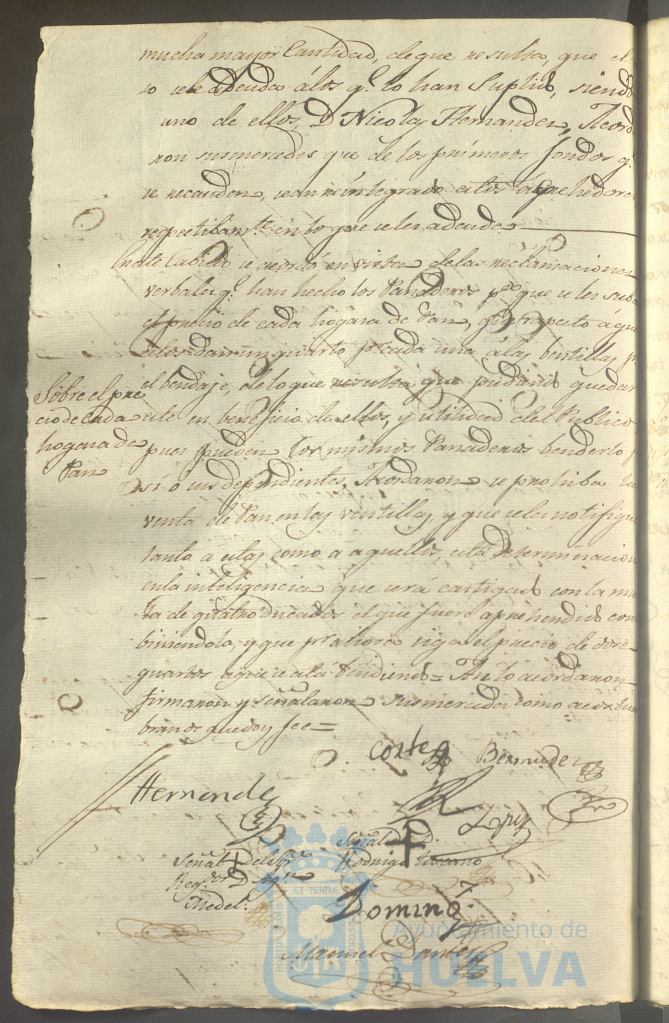 mucha mayor Cantidad, de que resulta, que el
se le adeuda á los q.e lo han Suplido, siendo
uno de ellos, D. Nicolas Hernandez, Acord
ron sus mercedes que de los primeros fondos q.e
se recauden, sean reintegrados estos
respectibam.te en lo que se les adeude
En este Cabildo se acordó en vista de las reclamaciones
verbales q.e han hecho los Panaderos p.a que se les suba
el precio de cada hogaza de Pan, q.e respecto a que
ellos dan un quarto p.r cada una á las bentillas p
el bendaje, de lo que resulta que pudiendo quedar
este en beneficio de ellos, y utilidad del Publico
pues pueden los mismos Panaderos benderlo p
si o sus dependientes, Acordaron se prohiba la
venta de Pan en las ventillas, y que se les notifique
tanto a estas como a aquellos, esta Determinacion
en la inteligencia que será castigado con la mul
ta de quatro ducados el que fuere aprehendido con
biniendola, y que p.r ahora siga el precio de dose
quartos a que se está bendiendo= Asi lo acordaron
firmaron y señalaron sus mercedes como acostum
bran de que doy fee=
Sobre el pre
cio de cada
hogaza de
Pan
Cortes
Bermudez
Hernandez
Lopez
Señal de D.
Rodrigo
Señal del Sr.
Reg.or D.
Fidel
Doming.z
Manuel
Ayuntamiento de
HUELVA